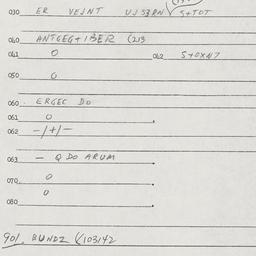 030 ER VEJNT UJ53RN √5+TOT
040 ANTGEG+IBER (213
041 0 042 5+0X417
050 0
060. ERGEC DO
061 0
062 -/+/-
063 - Q DO ARUM
070 0
0
080
901. BUNDZ ((103142